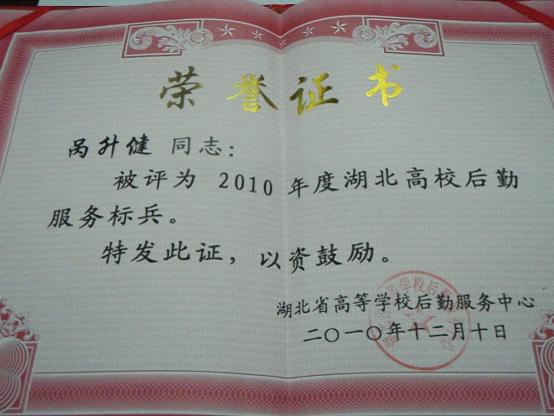 荣誉证书
呙升健 同志：
被评为 2010 年度湖北高校后勤
服务标兵。
特发此证，以资鼓励。
湖北省高等学校后勤服务中心
二〇一〇年十二月十日